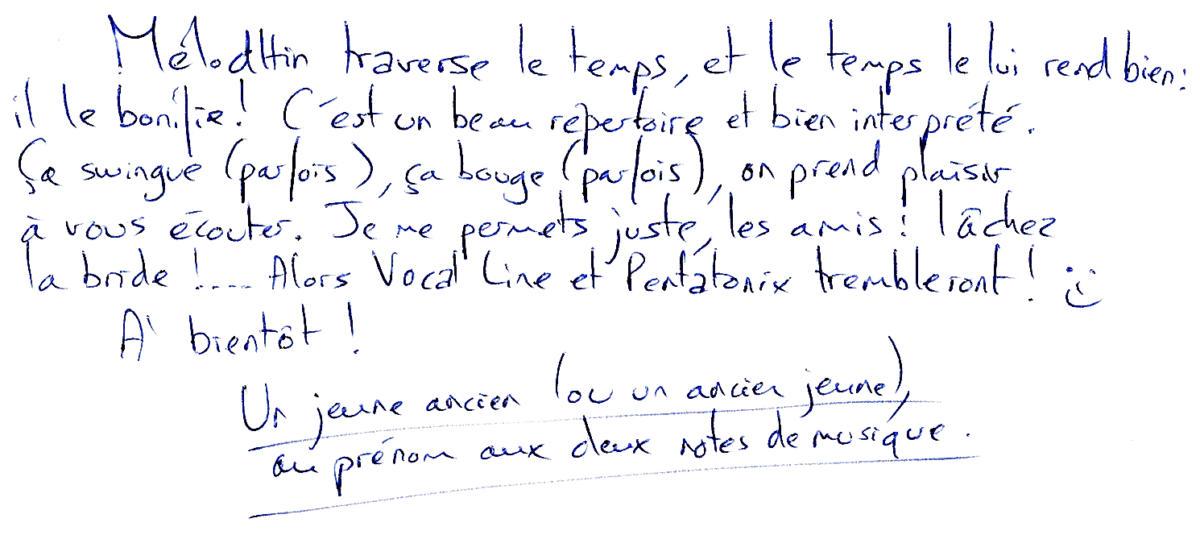 MélodHin traverse le temps, et le temps le lui rend bien :
il le bonifie ! C'est un beau répertoire et bien interprété.
Ça swingue (parfois), ça bouge (parfois), on prend plaisir
à vous écouter. Je me permets juste, les amis : lâchez
la bride !.... Alors Vocal Line et Pentatonix trembleront ! :)
A bientôt !
Un jeune ancien (ou un ancien jeune),
au prénom aux deux notes de musique.